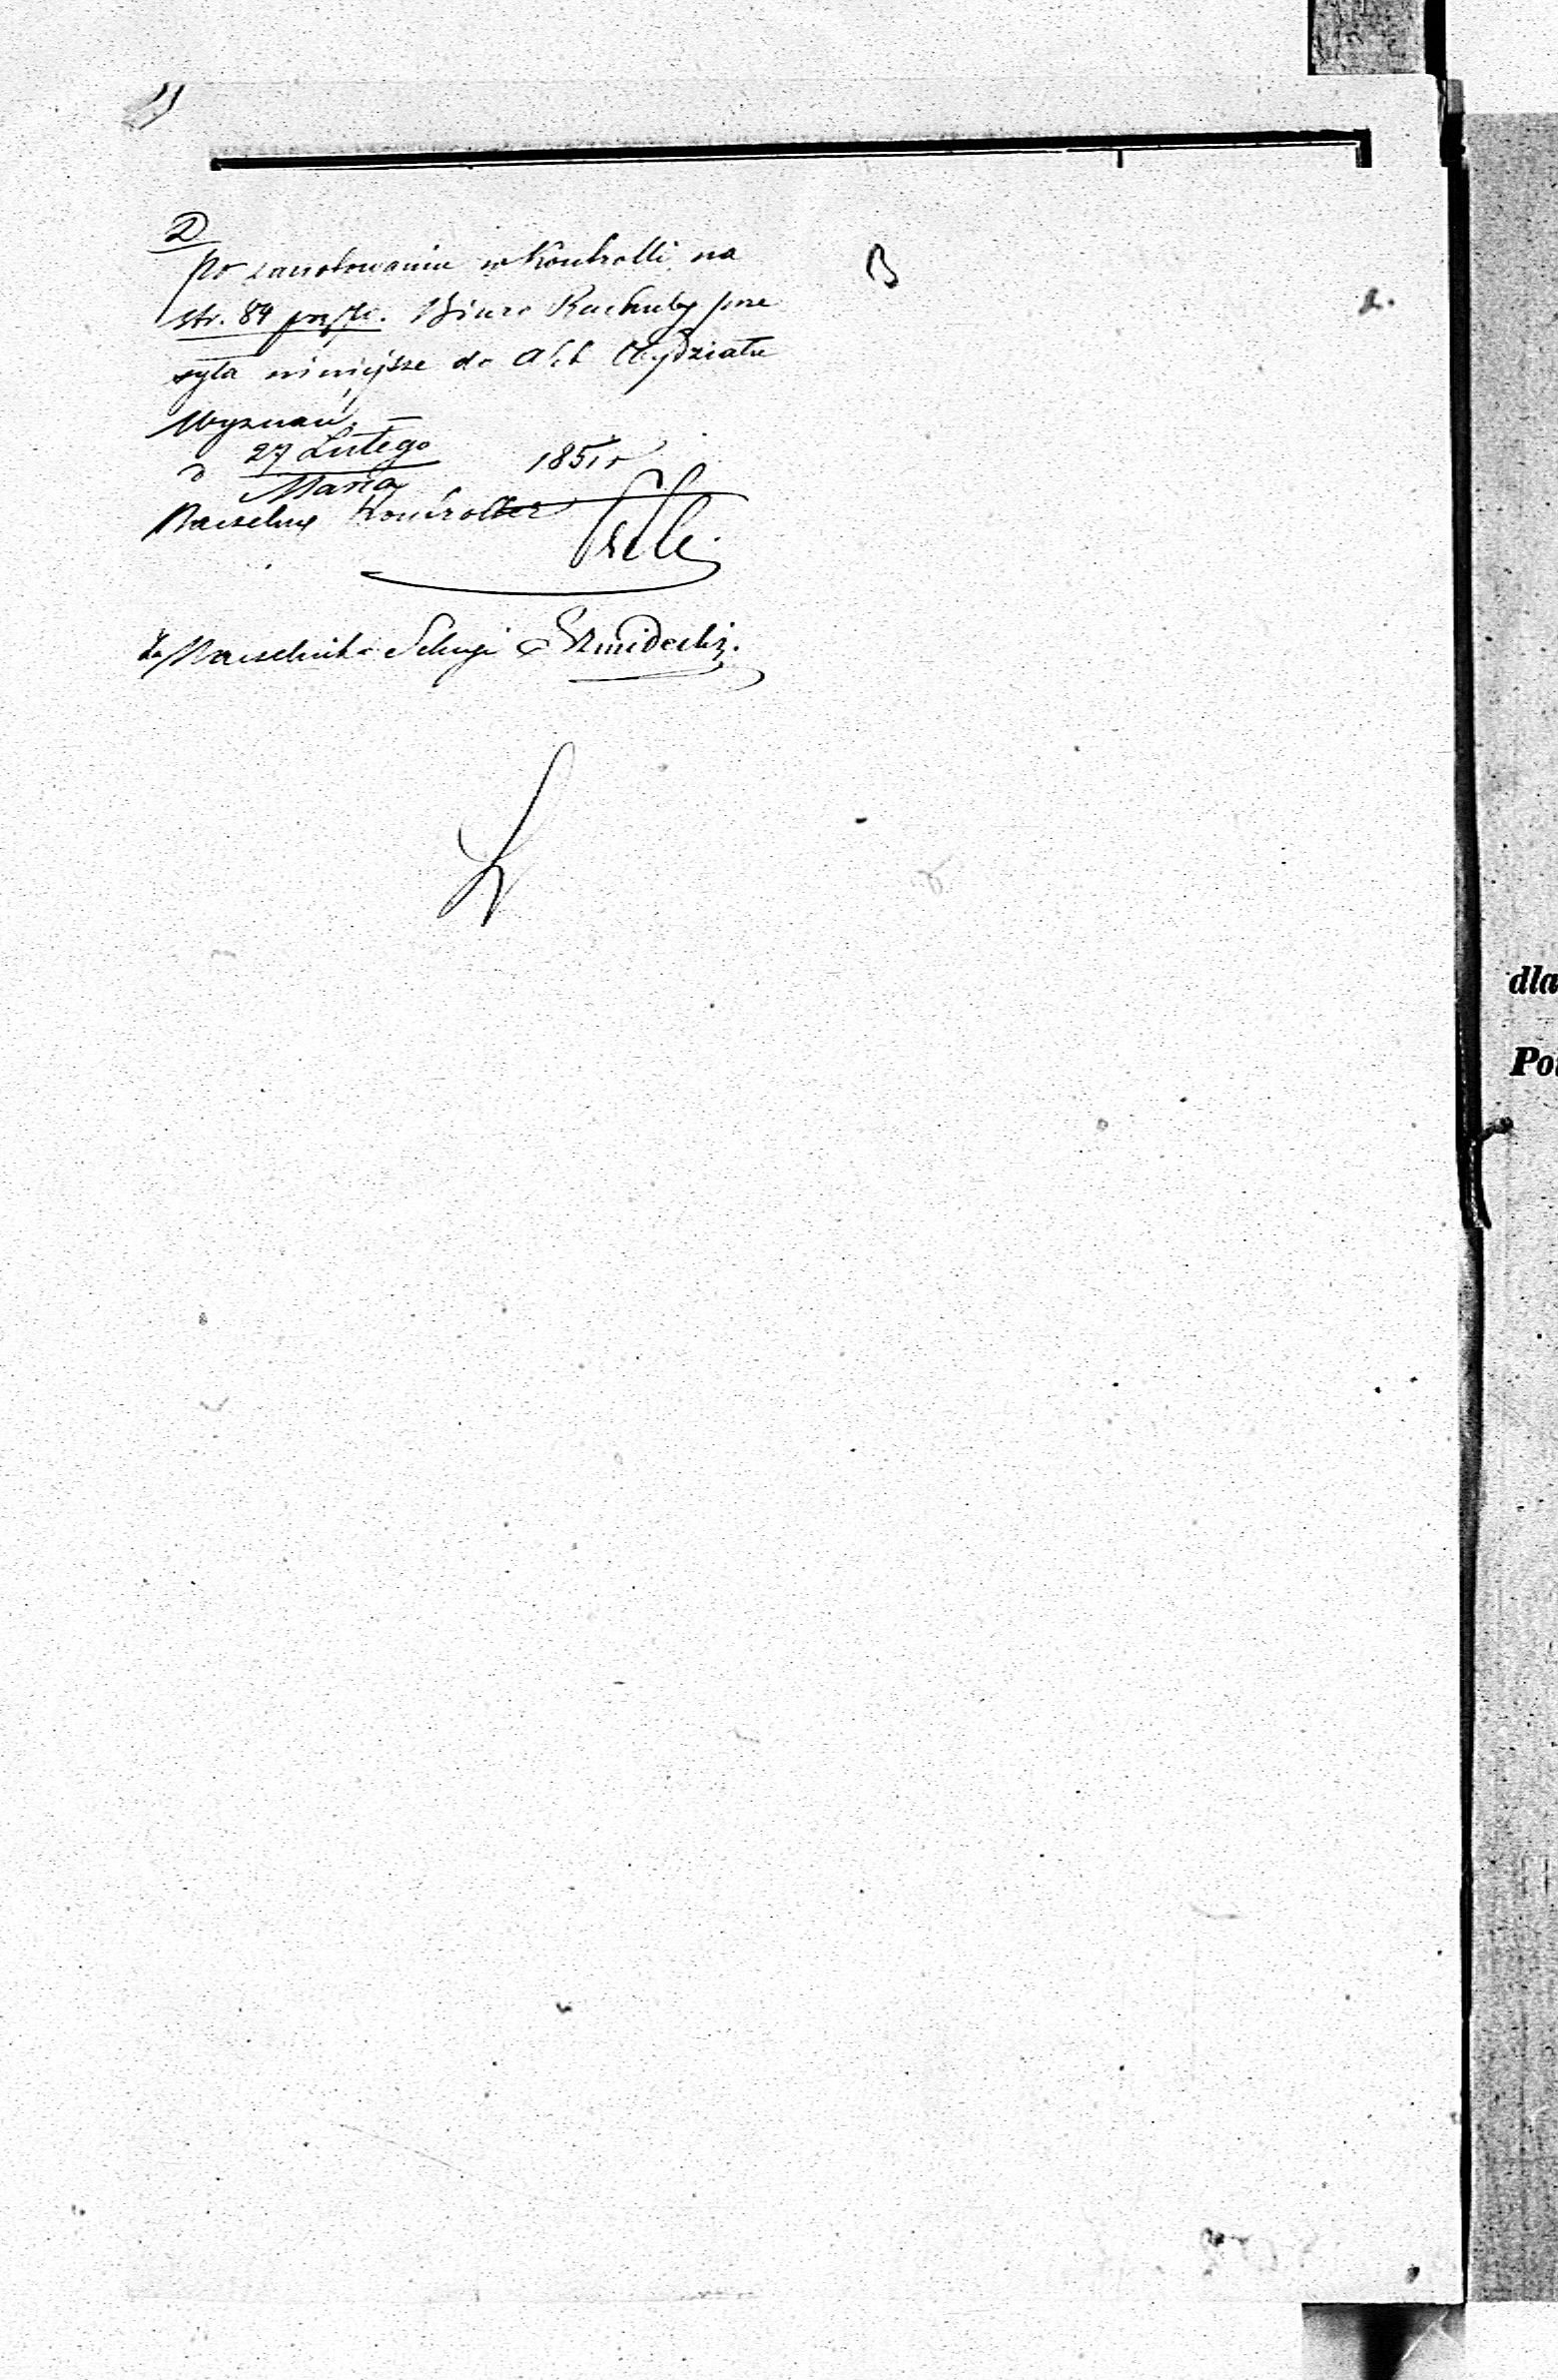 D
Po zanotowaniu w Kontrolli na
str. 84 Biuro Rachuby prze
syła niniejsze do Wydziału
Wyznań. —
d 27 Lutego 1851 r
Marca
Naczelny Kontroller
Za Naczelnika Sekcyi Szmidecki.
B
dla